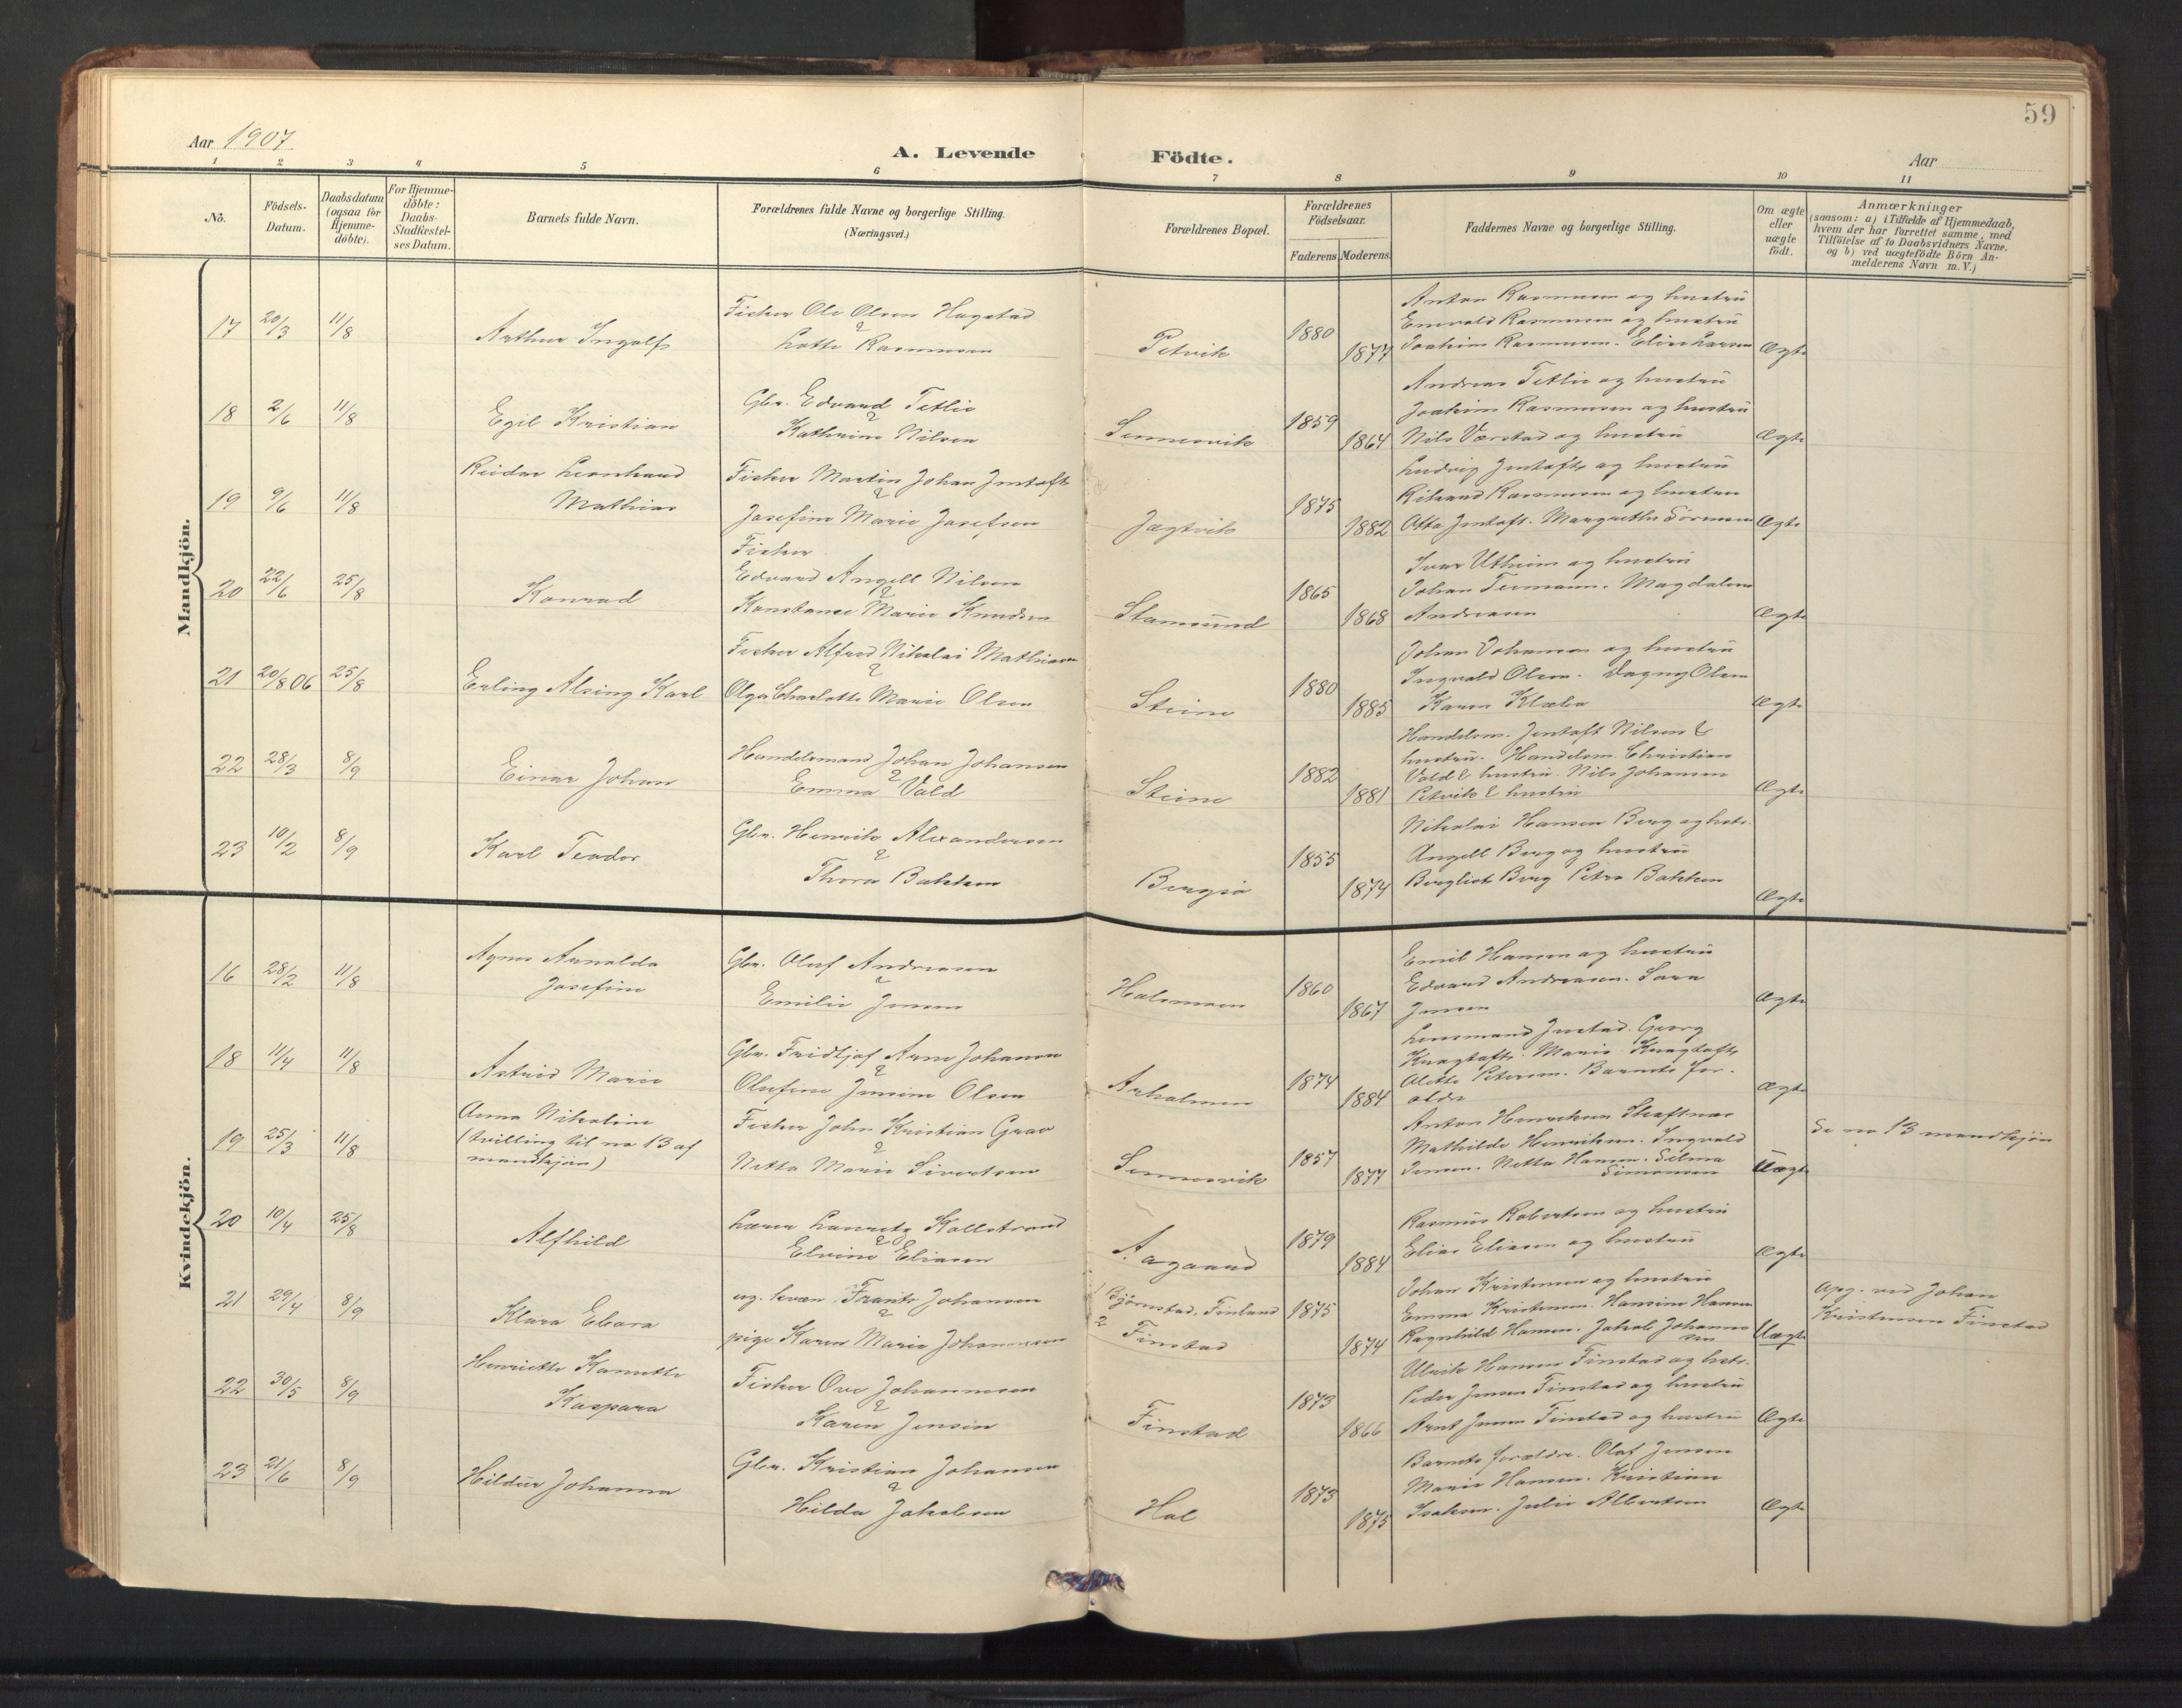 59
Aar 1907
A. Levende Födte.
Aar
1 2 3 4 5 6 7 8 9 10 11
No.
Födsels-
Datum.
Daabsdatum
(ogsaa for
Hjemme-
döbte).
For Hjemme-
döbte:
Daabs-
Stadfæstel-
ses Datum.
Barnets fulde Navn.
Forældrenes fulde Navne og borgerlige Stilling.
(Næringsvei.)
Forældrenes Bopæl.
Forældrenes
Födselsaar.
Faderens Moderens.
Faddernes Navne og borgerlige Stilling.
Om ægte
eller
uægte
födt.
Anmærkninger
(saasom: a) i Tilfælde af Hjemmedaab,
hvem der har forrettet samme, med
Tilföielse af to Daabsvidners Navne,
og b) ved uægtefödte Börn An-
melderens Navn m. V.)
Mandkjön.
17 20/3 11/8 Arthur Ingolf
Fisker Ole Olsen Hagstad
&
Lotte Rasmussen
Petvik 1880 1877
Anton Rasmussen og hustru
Enevald Rasmussen og hustru
Joakim Rasmussen. Elise Larsen
Ægte
18 2/6 11/8 Egil Kristian
Gbr. Edvard Tetlie
&
Kathrine Nilsen
Sennesvik 1859 1864
Andreas Tetlie og hustru
Joakim Rasmussen og hustru
Nils Værstad og hustru
Ægte
19 9/6 11/8 Reidar Leonhard
Mathias
Fisker Martin Johan Jentoft
&
Josefine Marie Josefsen
Jagtvik 1875 1882
Ludvig Jentoft og hustru
Rikard Rasmussen og hustru
Otto Jentoft. Margrethe Sörensen
Ægte
20 22/6 25/8 Konrad
Fisker
Edvard Angell Nilsen
&
Konstance Marie Knudsen
Stamsund 1865 1868
Ivar Utheim og hustru
Johan Tiemann. Magdalene
Andreasen
Ægte
21 20/8 06 25/8 Erling Alsing Karl
Fisker Alfred Nikolai Mathisen
&
Olga Charlotte Marie Olsen
Steine 1880 1885
Johan Johansen og hustru
Ingvald Olsen. Dagny Olsen
Karen Klæbo
Ægte
22 28/3 8/9 Einar Johan
Handelsmand Johan Johansen
&
Emma Vold
Steine 1882 1881
Handelsm. Jentoft Nilsen &
hustru. Handelsm. Christian
Vold & hustru. Nils Johansen
Petvik & hustru
Ægte
23 10/2 8/9 Karl Teodor
Gbr. Henrik Alexandersen
&
Thora Bakken
1855 1874
Nikolai Hansen Berg og hstr.
Angell Berg og hustru
Bergliot Berg Petra Bakken
Ægte
Kvindekjön.
16 28/2 11/8 Agnes Arnolda
Josefine
Gbr. Oluf Andreasen
&
Emilie Jensen
Halsmoen 1860 1867
Emil Hansen og hustru
Edvard Andreasen. Sara
Jensen
Ægte
18 11/4 11/8 Astrid Marie
Gbr. Fridtjof Arne Johansen
&
Olufine Jensine Olsen
Arholmen 1874 1884
Lensmand Justad. Georg
Knagtoft. Marie Knagtoft
Alette Petersen. Barnets for-
ældre
Ægte
19 25/3 11/8 Anna Nikoline
(tvilling til no 13 af
mandkjøn)
Fisker John Kristian Grav
&
Netta Marie Sivertsen
Sennesvik 1857 1877
Anton Henriksen Skaftnes
Mathilde Henriksen. Ingvald
Jensen. Netta Hansen. Selma
Simonsen
Uægte
Se no 13 mandkjön
20 10/4 25/8 Alfhild
Lærer Lauritz Kollstrand
&
Elvine Eliasen
Aagaard 1879 1884
Rasmus Robertsen og hustru
Elias Eliasen og hustru
Ægte
21 29/4 8/9 Klara Ebara
ug. kvæn Frants Johansen
&
pige Karen Marie Johannessen
1 Björnstad, Finland
2 Finstad
1875 1874
Johan Kristensen og hustru
Emma Kristensen. Hansine Hansen
Ragnhild Hansen. Jakob Johannes
sen
Uægte
Opg. ved Johan
Kristensen Finstad
22 30/5 8/9 Henriette Kanutte
Kaspara
Fisker Ove Johannesen
&
Karen Jensen
Finstad 1873 1866
Ulrik Hansen Finstad og hstr.
Peder Jensen Finstad og hustru
Arnt Jensen Finstad og hustru
Ægte
23 21/6 8/9 Hildur Johanna
Gbr. Kristian Johansen
&
Hilda Jakobsen
Hol 1873 1875
Barnets forældre. Olaf Jensen
Marie Hansen. Kristian
Isaksen. Julie Albertsen
Ægte